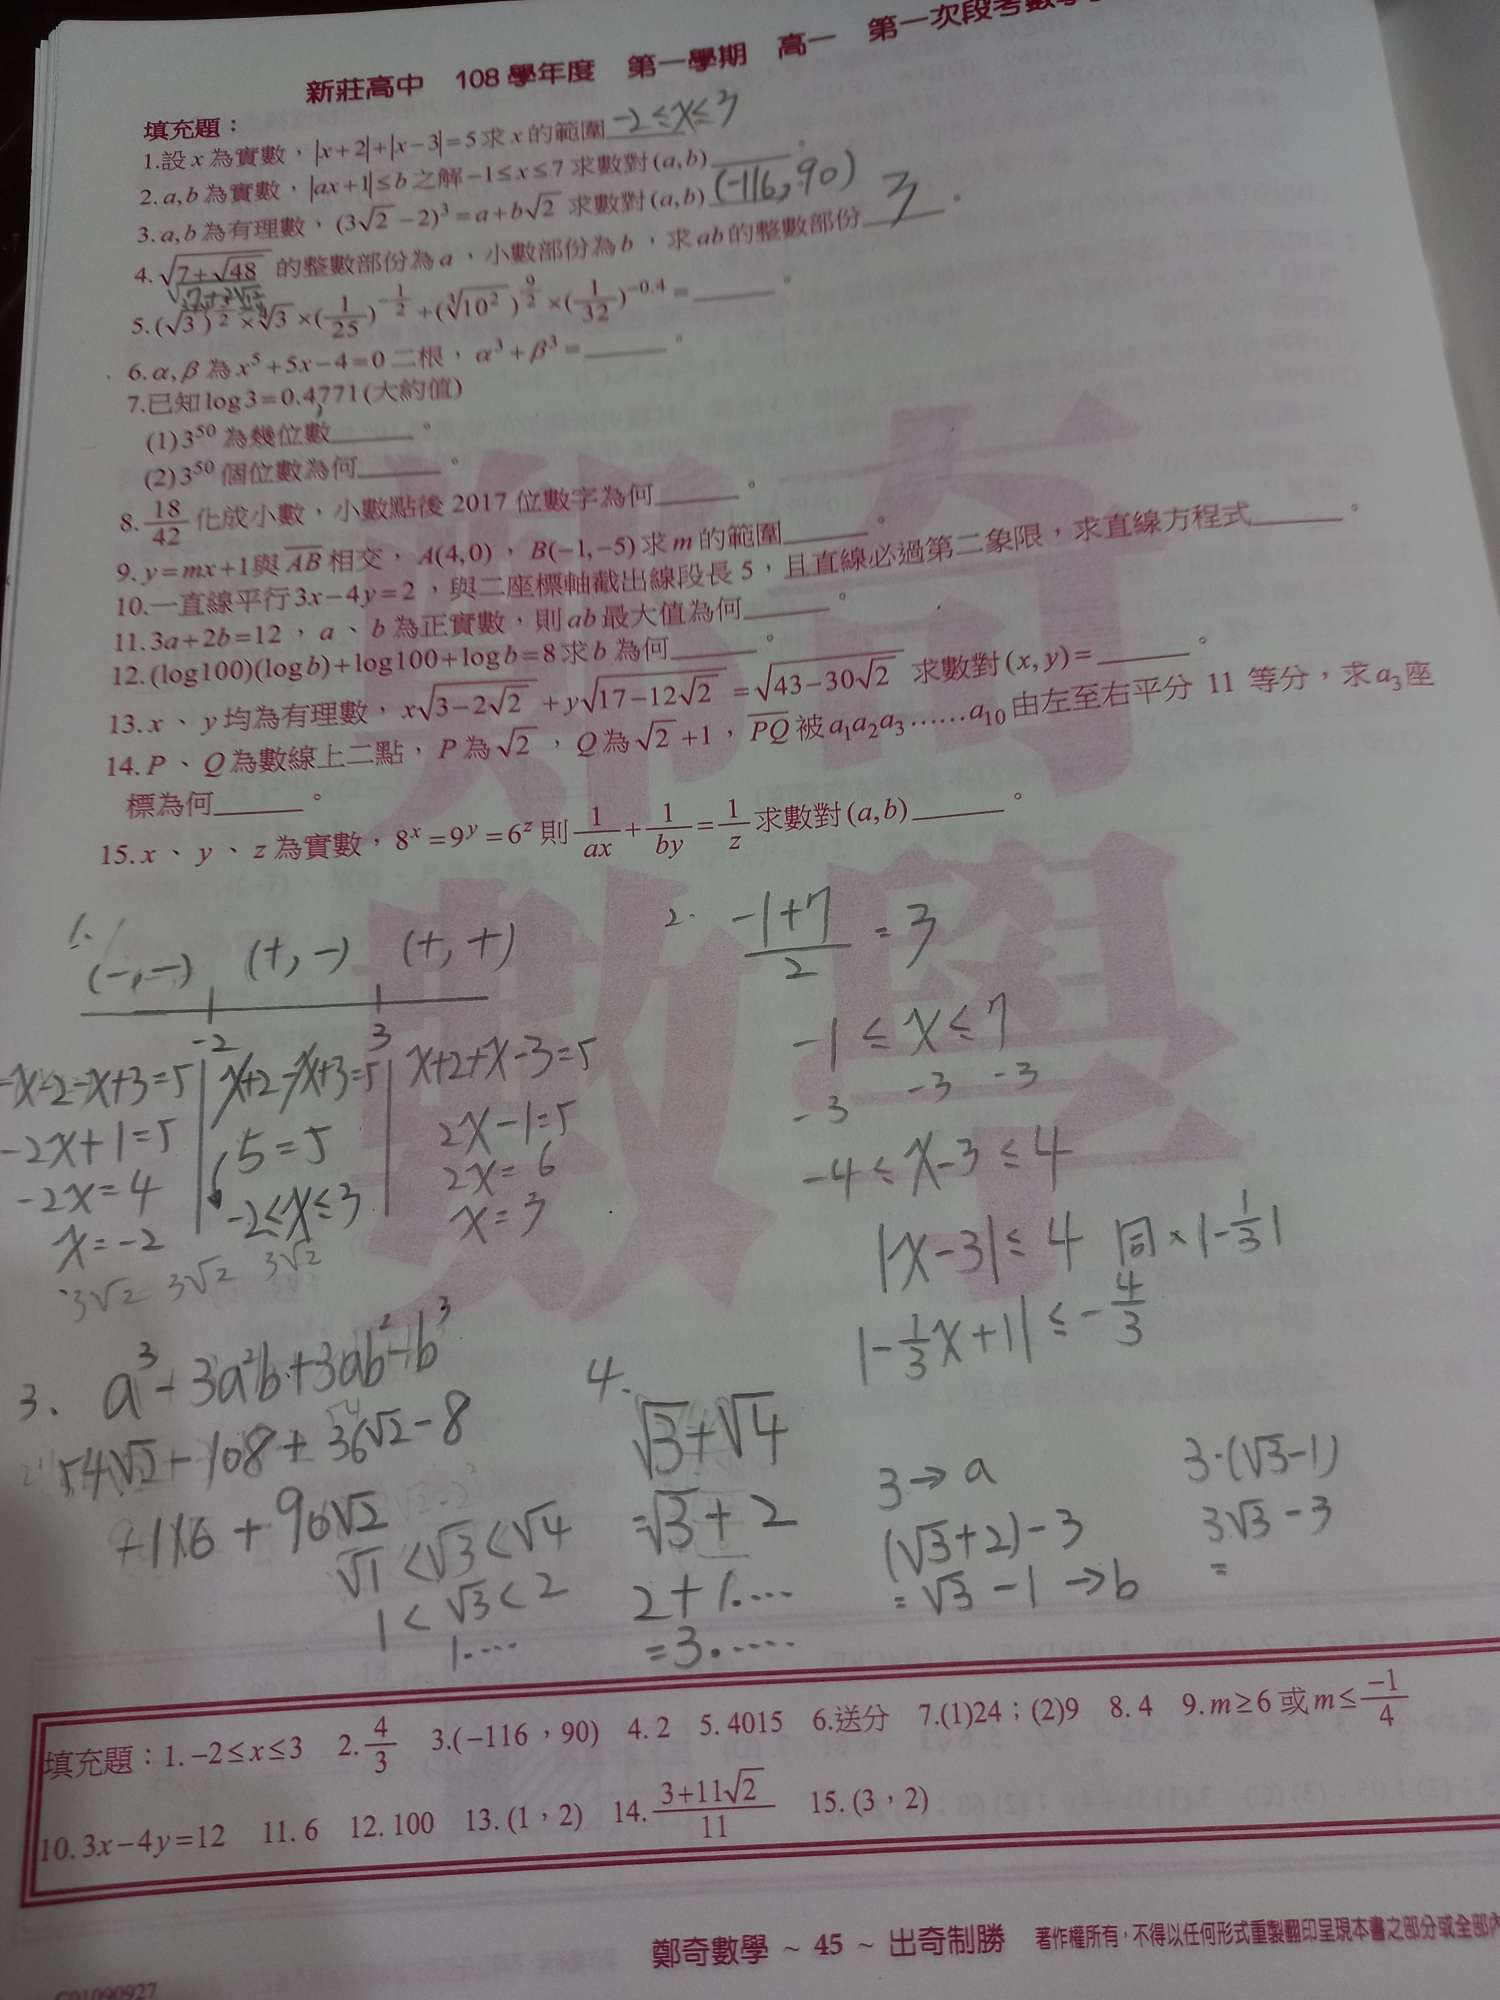 新莊高中 108 學年度 第一學期 高一 第一次段考數學
填充題：
1.設 x 為實數，|x+2|+|x−3|=5 求 x 的範圍 −2≤x≤3 。
2. a,b 為實數，|ax+1|≤b 之解 −1≤x≤7 求數對 (a,b)
3. a,b 為有理數，(3√2−2)³=a+b√2 求數對 (a,b) (−116, 90)
4. √(7+√48) 的整數部份為 a，小數部份為 b，求 ab 的整數部份 3 。
√(7+2√12)
5. (√3)^(2/2)×∜3×(1/25)^(−1/2)+(∛10²)^(9/2)×(1/32)^(−0.4)=______。
6. α,β 為 x⁵+5x−4=0 二根，α³+β³=______。
7.已知 log3=0.4771(大約值)
(1) 3⁵⁰ 為幾位數______。
(2) 3⁵⁰ 個位數為何______。
8. 18/42 化成小數，小數點後 2017 位數字為何______。
9. y=mx+1與 AB 相交，A(4,0)，B(−1,−5) 求 m 的範圍______。
10.一直線平行3x−4y=2，與二座標軸截出線段長 5，且直線必過第二象限，求直線方程式______。
11.3a+2b=12，a、b 為正實數，則 ab 最大值為何______。
12.(log100)(logb)+log100+logb=8求 b 為何______。
13.x、y均為有理數，x√(3−2√2)+y√(17−12√2)=√(43−30√2) 求數對 (x,y)=______。
14.P、Q為數線上二點，P 為√2，Q 為√2+1，PQ 被 a₁a₂a₃……a₁₀ 由左至右平分 11 等分，求 a₃座
標為何______。
15.x、y、z 為實數，8ˣ=9ʸ=6ᶻ 則 1/ax+1/by=1/z 求數對 (a,b)______。
1.
(−,−) (+,−) (+,+)
−2 3
−x−2−x+3=5 x+2−x+3=5 x+2+x−3=5
−2x+1=5 5=5 2x−1=5
−2x=4 −2≤x≤3 2x=6
x=−2 x=3
3√2 3√2 3√2
2. (−1+7)/2 = 3
−1≤x≤7
−3 −3 −3
−4≤x−3≤4
|x−3|≤4 同×|−1/3|
|−1/3x+1|≤−4/3
3. a³−3a²b+3ab²−b³
54√2−108+36√2−8
−116+90√2
4.
√3+√4
=√3+2
2+1.…
=3.……
√1<√3<√4
1<√3<2
1.…
3→a
(√3+2)−3
=√3−1→b
3·(√3−1)
3√3−3
=
填充題：1. −2≤x≤3 2. 4/3 3.(−116，90) 4. 2 5. 4015 6.送分 7.(1)24；(2)9 8. 4 9. m≥6 或 m≤−1/4
10. 3x−4y=12 11. 6 12. 100 13. (1，2) 14. (3+11√2)/11 15. (3，2)
鄭奇數學 ~ 45 ~ 出奇制勝 著作權所有，不得以任何形式重製翻印呈現本書之部分或全部內
C01090927
鄭奇
數學